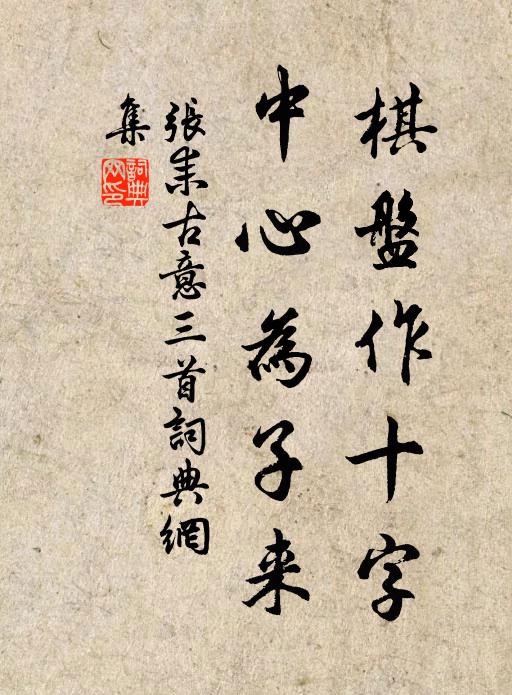 棋盤作十字
中心為子来
張耒古意三首詞典網
集
詞典
網印